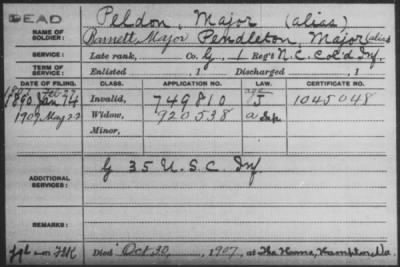 DEAD
Peldon, Major (alias)
NAME OF SOLDIER: Barnett, Major Pendleton, Major (alias)
SERVICE: Late rank, Co. G, 1 Reg't N.C. Col'd Inf.
TERM OF SERVICE: Enlisted , 1 Discharged , 1
DATE OF FILING. CLASS. APPLICATION NO. LAW. CERTIFICATE NO.
1890 Jan 14 Invalid, 749810 J 1045048
1907 Nov 22 Widow, 920538 a
Minor,
ADDITIONAL SERVICES: G 35 U.S.C. Inf.
REMARKS:
Died Oct. 30, 1907, at The Home, Hampton Va.